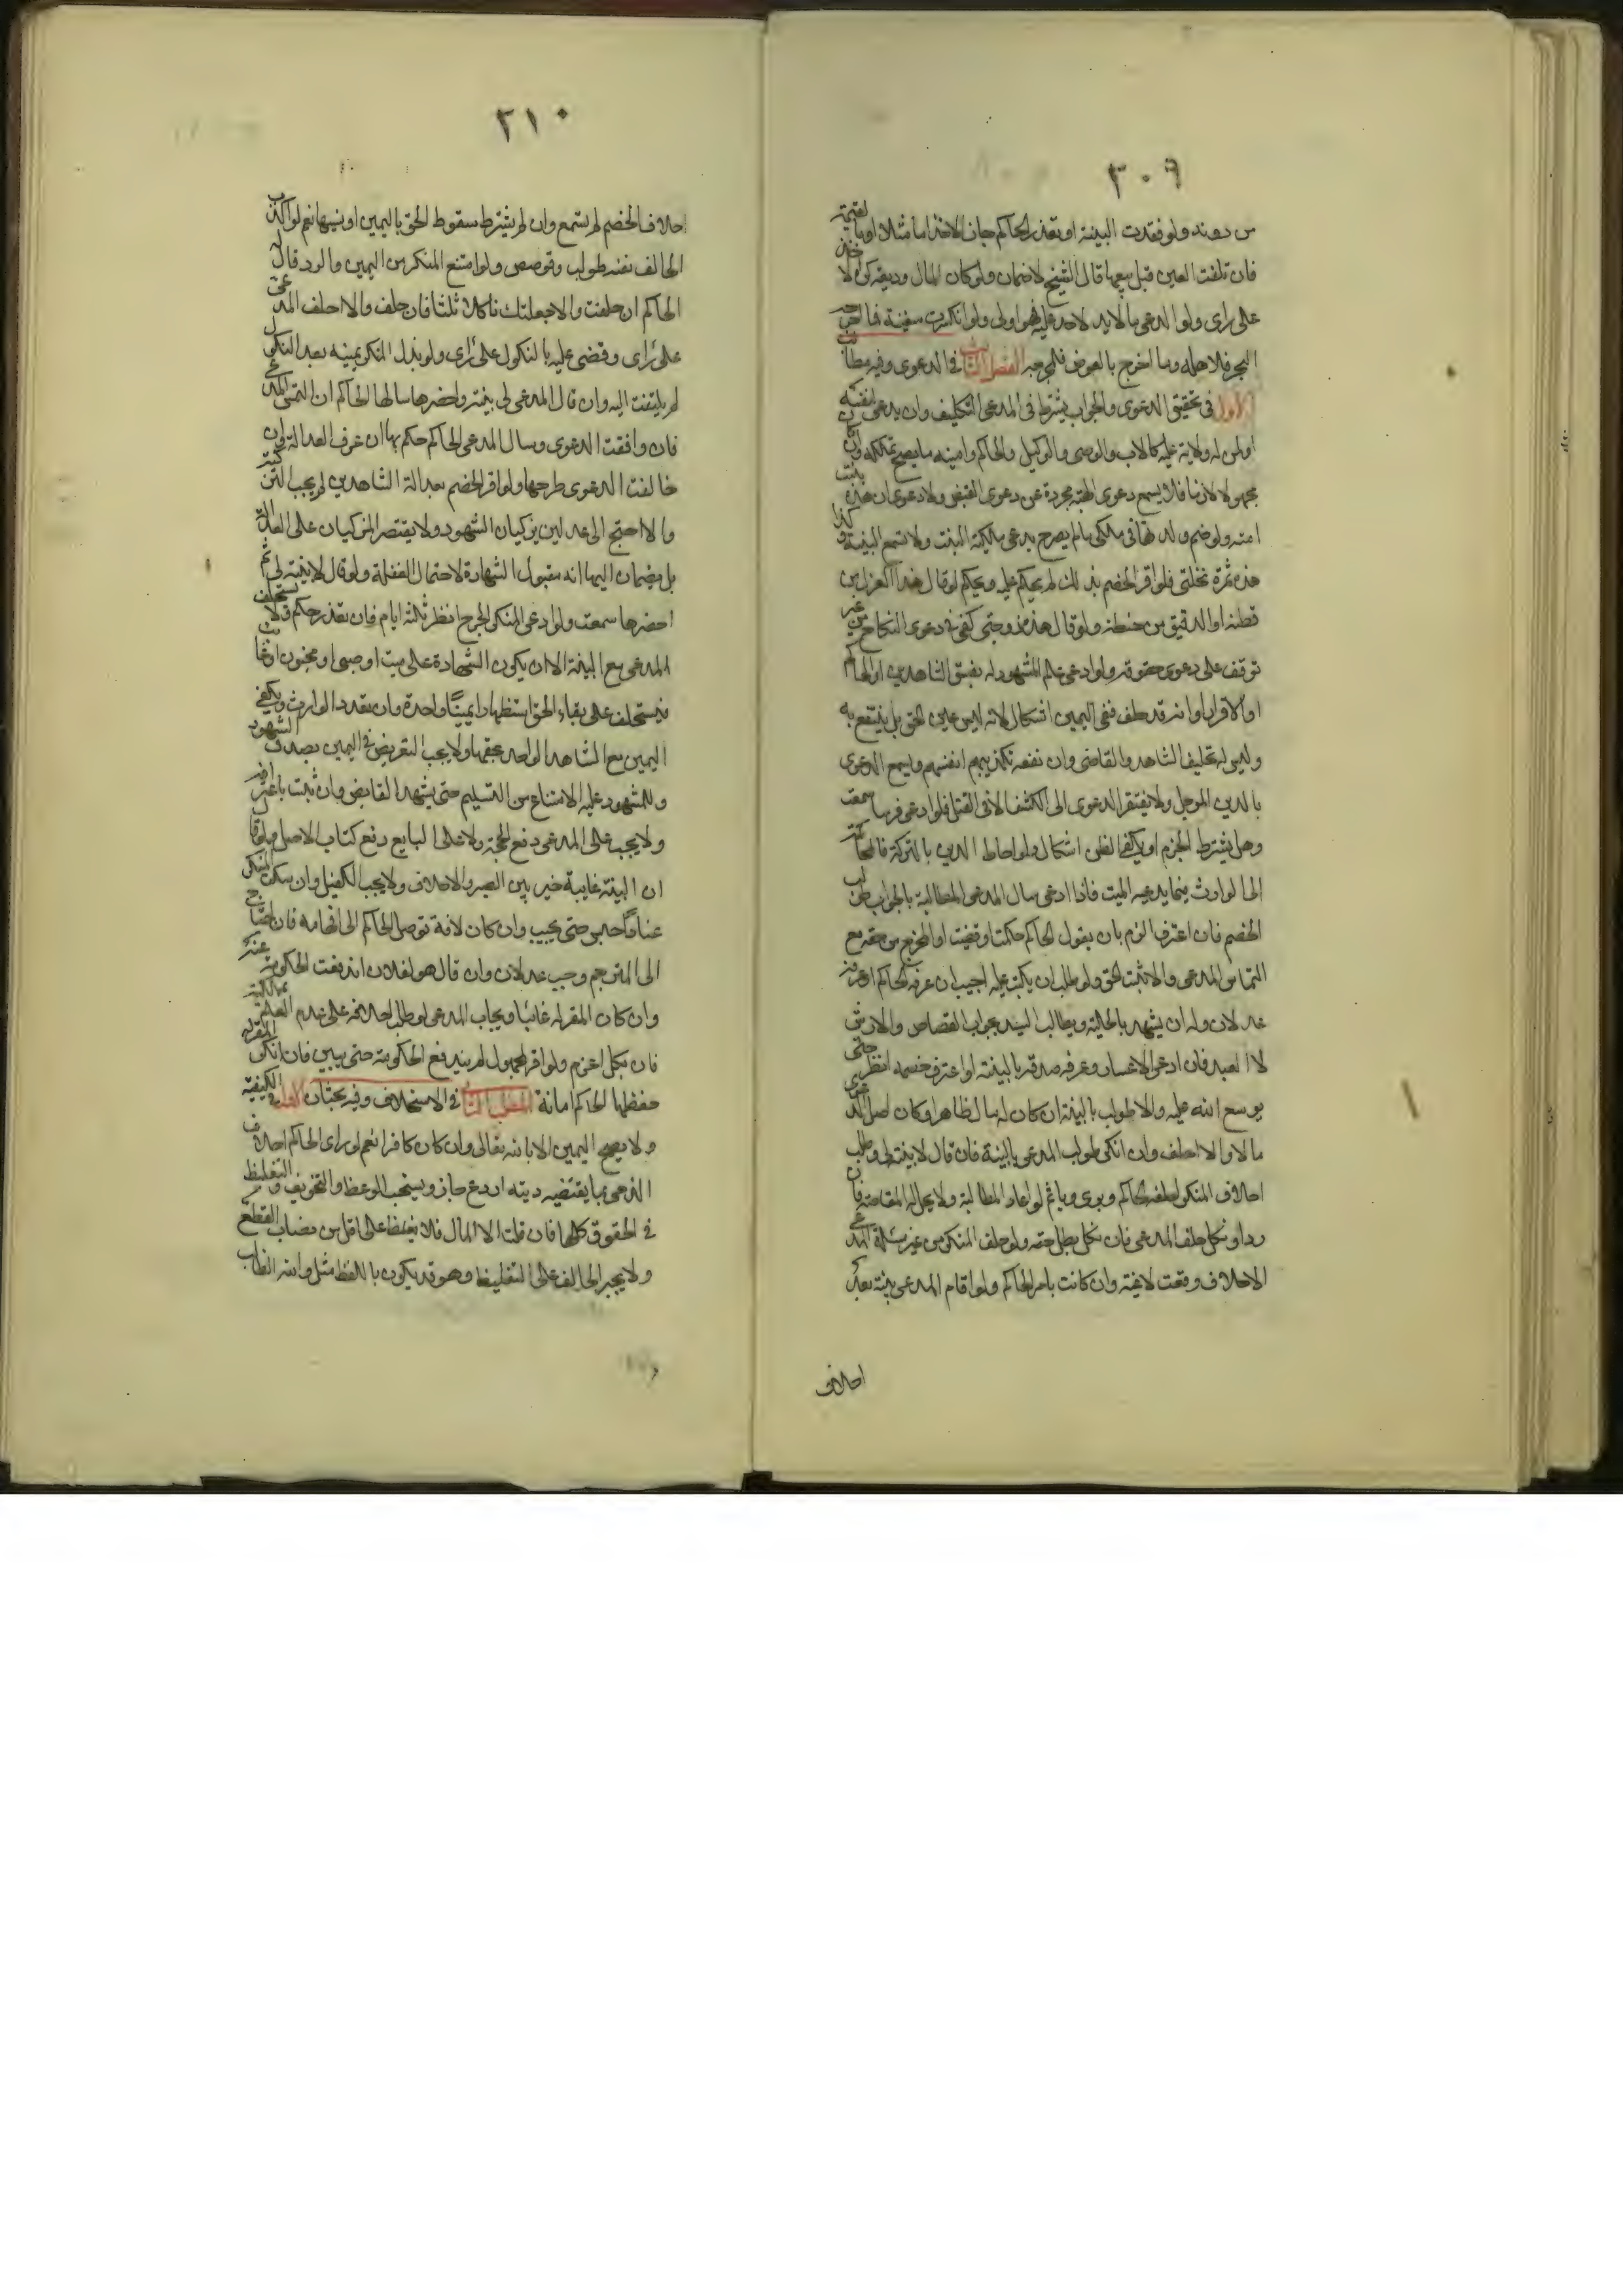 ٣٠٩
من دونه ولو فقدت البينة او تعذر الحاكم جاز الاخذ اما مثلا او بالقيمة
فان تلفت العين قبل بيعها قال الشيخ لا ضمان ولو كان المال وديعة كره الاخذ
على راى ولو ادعى ما لا يد لاحد عليه فهو اولى ولو انكسرت سفينة فما اخرجه
البحر فلاهله وما اخرج بالغوص فلمخرجه الفصل الثالث فى الدعوى وفيه مطالب
الاول فى تحقيق الدعوى والجواب يشترط فى المدعى التكليف وان يدعى لنفسه
او لمن له ولاية عليه كالاب والوصى والوكيل والحاكم وامينه ما يصح تملكه وان كان
مجهولا لازما فلا يسمع دعوى الهبة مجردة عن دعوى القبض ولا دعوى ان هذه بنت
امته ولو ضم ولدتها فى ملكى ما لم يصرح بدعوى ملكية البنت ولا تسمع البينة وكذا
هذه ثمرة نخلتى فلو اقر الخصم بذلك لم يحكم عليه ويحكم لو قال هذا الغزل من
قطنه او الدقيق من حنطته ولو قال هذه زوجتى كفى فى دعوى النكاح من غير
توقف على دعوى حقوقه ولو ادعى علم المشهود له بفسق الشاهدين او الحاكم
او الاقرار او انه قد حلف ففى اليمين اشكال لانه ليس عين الحق بل ينتفع به
وليس له تحليف الشاهد والقاضى وان نفعه تكذيبهم انفسهم ويسمع الدعوى
بالدين الموجل ولا يفتقر الدعوى الى الكشف الا فى القتل فلو ادعى فرسا سمعت
وهل يشترط الجزم او يكفى الظن اشكال ولو احاط الدين بالتركة فالمحاكمة
الى الوارث فيما يدعيه للميت فاذا ادعى سال المدعى المطالبة بالجواب طولب
الخصم فان اعترف الزم بان يقول الحاكم حكمت او قضيت او اخرج من حقه مع
التماس المدعى والا ثبت الحق ولو طلب ان يكتب عليه اجيب ان عرفه الحاكم او عرفه
عدلان وله ان يشهد بالحلية ويطالب السيد بجواب القصاص والارش
لا العبد فان ادعى الاعسار وعرف صدقه بالبينة او اعترف خصمه انظر حتى
يوسع الله عليه والا طولب بالبينة ان كان له مال ظاهرا وكان اصل الدعوى
مالا والا احلف وان انكر طولب المدعى بالبينة فان قال لا بينة لى وطلب
احلاف المنكر احلفه الحاكم وبرى وياثم لو اعاد المطالبة ولا يحل له المقاصة فان
رد او نكل حلف المدعى فان نكل بطل حقه ولو حلف المنكر من غير مسئلة المدعى
الاحلاف وقعت لاغية وان كانت بامر الحاكم ولو اقام المدعى بينة بعد
احلاف
٣١٠
احلاف الخصم لم تسمع وان لم يشترط سقوط الحق باليمين او نسيها نعم لو اكذب
الحالف نفسه طولب وقوصص ولو امتنع المنكر من اليمين والرد قال له
الحاكم ان حلفت والا جعلتك ناكلا ثلثا فان حلف والا احلف المدعى
على راى وقضى عليه بالنكول على راى ولو بذل المنكر يمينه بعد النكول
لم يلتفت اليه وان قال المدعى لى بينة واحضرها سالها الحاكم ان التمس المدعى
فان وافقت الدعوى وسال المدعى الحاكم حكم بها ان عرف العدالة وان
خالفت الدعوى طرحها ولو اقر الخصم بعدالة الشاهدين لم يجب التزكية
والا احتج الى عدلين يزكيان الشهود ولا يقتصر المزكيان على العدالة
بل يضمان اليها انه مقبول الشهادة لاحتمال الغفلة ولو قال لا بينة لى ثم
احضرها سمعت ولو ادعى المنكر الجرح انظر ثلثة ايام فان تعذر حكم ولا يستحلف
المدعى مع البينة الا ان يكون الشهادة على ميت او صبى او مجنون او غائب
فيستحلف على بقاء الحق استظهارا يمينا واحدة وان تعدد الوارث ويكفى
اليمين مع الشاهد الواحد عنها ولا يجب التعريض فى اليمين بصدق الشهود
وللمشهود عليه الامتناع من التسليم حتى يشهد القابض وان ثبت باعترافه
ولا يجب على المدعى دفع الحجة ولا على البايع دفع كتاب الاصل ولو قال
ان البينة غايبة خير بين الصبر والاحلاف ولا يجب الكفيل وان سكت المنكر
عنادا حبس حتى يجيب وان كان لافة توصل الحاكم الى افهامه فان احتاج
الى المترجم وجب عدلان وان قال هو لفلان اندفعت الحكومة عنه
وان كان المقر له غائبا ويجاب المدعى لو طلب احلافه على عدم العلم بملكيته
فان نكل اغرم ولو اقر لمجهول لم يندفع الحكومة حتى يبين فان انكر المقر له
حفظها الحاكم امانة المطلب الثانى فى الاستحلاف وفيه بحثان الاول فى الكيفية
ولا يصح اليمين الا بالله تعالى وان كان كافرا نعم لو راى الحاكم احلاف
الذمى بما يقتضيه دينه اردع جاز ويستحب الوعظ والتخويف والتغليظ
فى الحقوق كلها وان قلت الا المال فلا يغلظ على اقل من نصاب القطع
ولا يجبر الحالف على التغليظ وهو قد يكون باللفظ مثل والله الطالب